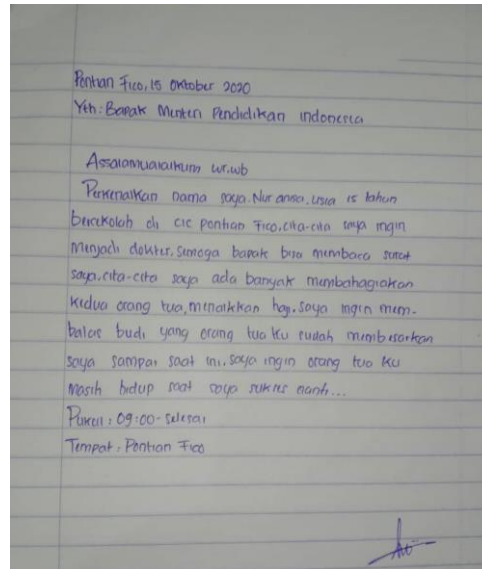 Pontian Fico, 15 Oktober 2020
Yth: Bapak Menteri Pendidikan Indonesia
Assalamualaikum wr.wb
Perkenalkan nama saya. Nur anisa, usia 15 tahun
bersekolah di clc pontian Fico, cita-cita saya ingin
menjadi dokter. Semoga bapak bisa membaca surat
saya. cita-cita saya ada banyak membahagiakan
kedua orang tua, menaikkan haji. saya ingin mem-
balas budi yang orang tua ku sudah membesarkan
saya sampai saat ini. saya ingin orang tua ku
masih hidup saat saya sukses nanti...
Pukul : 09:00 - selesai
Tempat : Pontian Fico